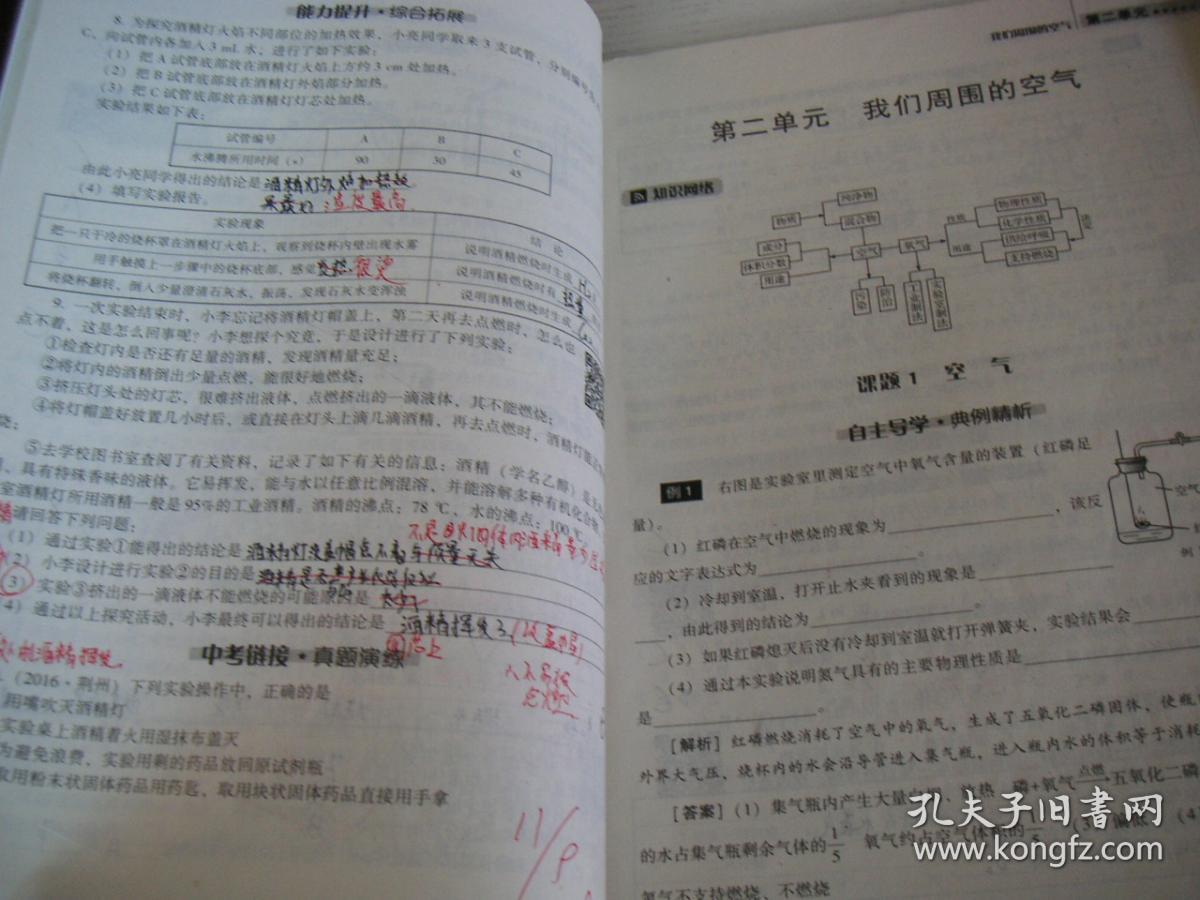 能力提升·综合拓展
8. 为探究酒精灯火焰不同部位的加热效果，小亮同学取来3支试管，分别编号
C，向试管内各加入3 mL 水，进行了如下实验：
（1）把A试管底部放在酒精灯火焰上方约3 cm 处加热。
（2）把B试管底部放在酒精灯外焰部分加热。
（3）把C试管底部放在酒精灯灯芯处加热。
实验结果如下表：
试管编号 A B C
水沸腾所用时间（s） 90 30 45
由此小亮同学得出的结论是酒精灯外焰加热效
果最好；温度最高
（4）填写实验报告。
实验现象 结论
把一只干冷的烧杯罩在酒精灯火焰上，观察到烧杯内壁出现水雾 说明酒精燃烧时生成
用手触摸上一步骤中的烧杯底部，感觉发热 很烫 说明酒精燃烧时有热量
将烧杯翻转，倒入少量澄清石灰水，振荡，发现石灰水变浑浊 说明酒精燃烧时生成
9. 一次实验结束时，小李忘记将酒精灯灯帽盖上，第二天再去点燃时，怎么也
点不着，这是怎么回事呢？小李想探个究竟，于是设计进行了下列实验：
①检查灯内是否还有足量的酒精，发现酒精量充足；
②将灯内的酒精倒出少量点燃，能很好地燃烧；
③挤压灯头处的灯芯，很难挤出液体，点燃挤出的一滴液体，其不能燃烧；
④将灯帽盖好放置几小时后，或直接在灯头上滴几滴酒精，再去点燃时，酒精灯能
烧；
⑤去学校图书室查阅了有关资料，记录了如下有关的信息：酒精（学名乙醇）是无
，具有特殊香味的液体。它易挥发，能与水以任意比例混溶，并能溶解多种有机化合物
室酒精灯所用酒精一般是95%的工业酒精。酒精的沸点：78 ℃，水的沸点：100 ℃
请回答下列问题：
（1）通过实验①能得出的结论是
（2）小李设计进行实验②的目的是
（3）实验③挤出的一滴液体不能燃烧的可能原因是
（4）通过以上探究活动，小李最终可以得出的结论是 酒精挥发了
中考链接·真题演练
（2016·荆州）下列实验操作中，正确的是
用嘴吹灭酒精灯
实验桌上酒精着火用湿抹布盖灭
为避免浪费，实验用剩的药品放回原试剂瓶
取用粉末状固体药品用药匙，取用块状固体药品直接用手拿
11/9
我们周围的空气 第二单元
第二单元 我们周围的空气
知识网络
物质 纯净物 混合物
成分 体积分数 用途
空气 氧气
污染 防治 工业制法 实验室制法
性质 用途
物理性质 化学性质 供给呼吸 支持燃烧
决定
课题1 空气
自主导学·典例精析
例1 右图是实验室里测定空气中氧气含量的装置（红磷足
量）。
（1）红磷在空气中燃烧的现象为，该反
应的文字表达式为。
（2）冷却到室温，打开止水夹看到的现象是
，由此得到的结论为。
（3）如果红磷熄灭后没有冷却到室温就打开弹簧夹，实验结果会
（4）通过本实验说明氮气具有的主要物理性质是
是。
空气
例
[解析] 红磷燃烧消耗了空气中的氧气，生成了五氧化二磷固体，使瓶
外界大气压，烧杯内的水会沿导管进入集气瓶，进入瓶内水的体积等于消耗
[答案]（1）集气瓶内产生大量白烟，放热 磷+氧气 点燃→ 五氧化二磷
的水占集气瓶剩余气体的1/5 氧气约占空气体积的1/5 （3）偏低 （4）
氮气不支持燃烧、不燃烧
孔夫子旧书网
www.kongfz.com